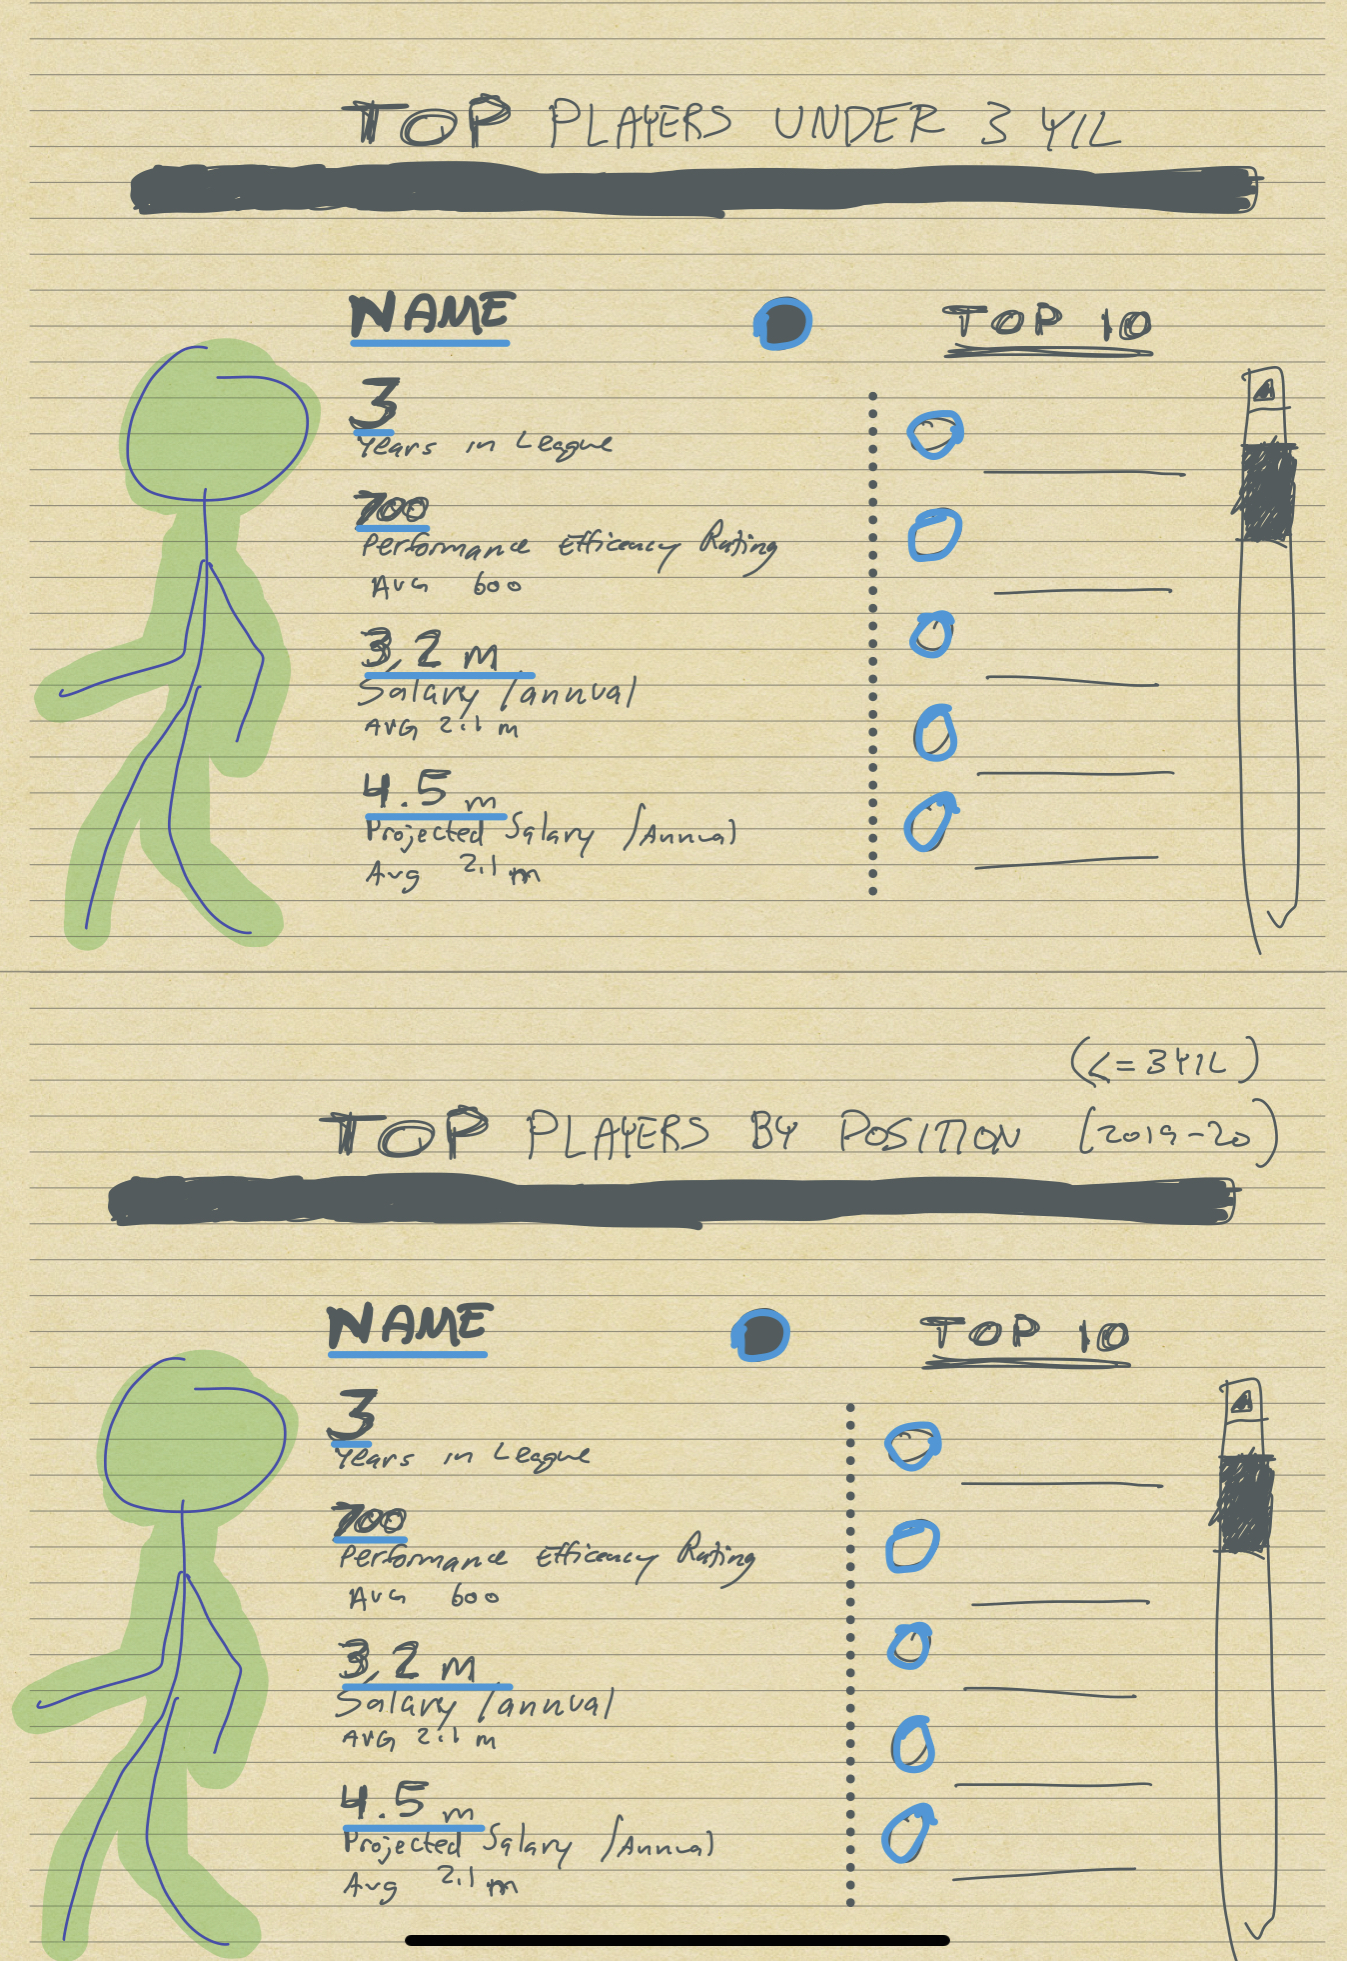 TOP PLAYERS UNDER 3 YIL
NAME
TOP 10
3
Years in League
700
Performance Efficency Rating
AVG 600
3,2 m
Salary /annual
AVG 2.1 m
4.5 m
Projected Salary /Annual
Avg 2.1 m
(<= 3 YIL)
TOP PLAYERS BY POSITION (2019-20)
NAME
TOP 10
3
Years in League
700
Performance Efficency Rating
AVG 600
3,2 m
Salary /annual
AVG 2.1 m
4.5 m
Projected Salary /Annual
Avg 2.1 m